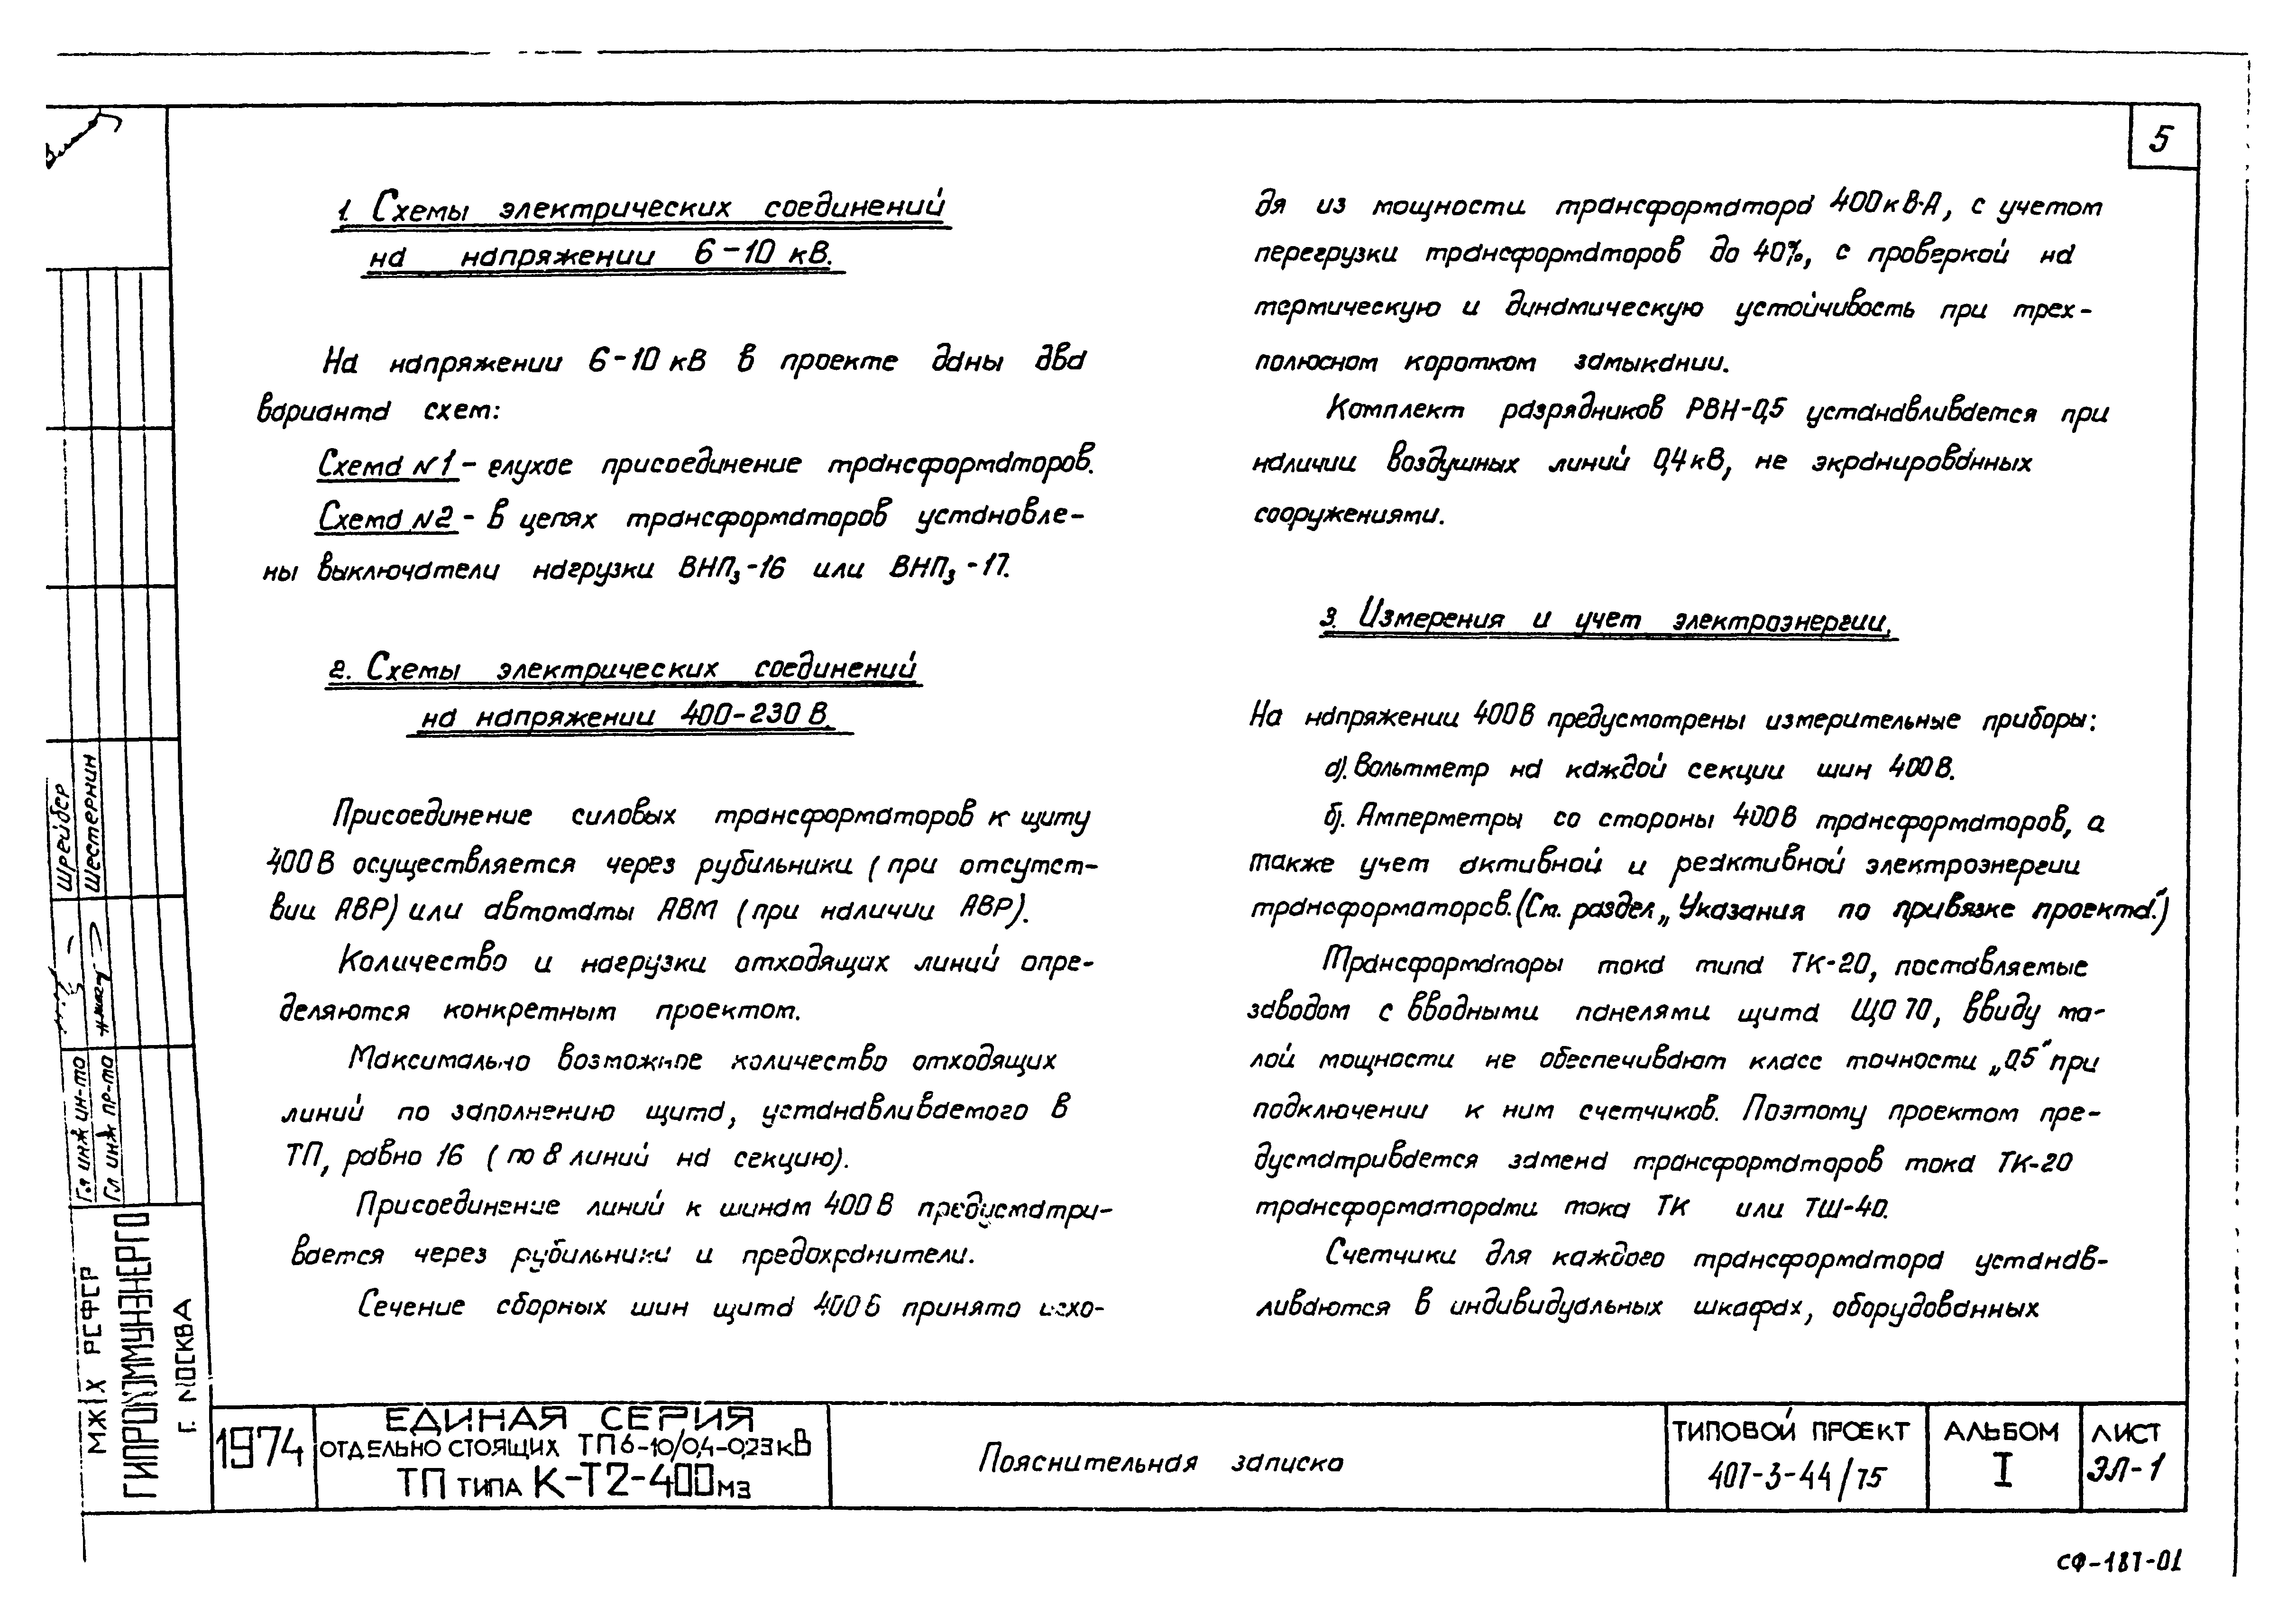 5
1. Схемы электрических соединений
на напряжении 6-10 кВ.
На напряжении 6-10 кВ в проекте даны два
варианта схем:
Схема №1 - глухое присоединение трансформаторов.
Схема №2 - в цепях трансформаторов установле-
ны выключатели нагрузки ВНПз-16 или ВНПз-17.
2. Схемы электрических соединений
на напряжении 400-230 В.
Присоединение силовых трансформаторов к щиту
400 В осуществляется через рубильники (при отсутст-
вии АВР) или автоматы АВМ (при наличии АВР).
Количество и нагрузки отходящих линий опре-
деляются конкретным проектом.
Максимально возможное количество отходящих
линий по заполнению щита, устанавливаемого в
ТП, равно 16 (по 8 линий на секцию).
Присоединение линий к шинам 400 В предусматри-
вается через рубильники и предохранители.
Сечение сборных шин щита 400 В принято исхо-
дя из мощности трансформатора 400 кВ·А, с учетом
перегрузки трансформаторов до 40%, с проверкой на
термическую и динамическую устойчивость при трех-
полюсном коротком замыкании.
Комплект разрядников РВН-0,5 устанавливается при
наличии воздушных линий 0,4 кВ, не экранированных
сооружениями.
3. Измерения и учет электроэнергии.
На напряжении 400 В предусмотрены измерительные приборы:
а). Вольтметр на каждой секции шин 400 В.
б). Амперметры со стороны 400 В трансформаторов, а
также учет активной и реактивной электроэнергии
трансформаторов. (См. раздел „Указания по привязке проекта".)
Трансформаторы тока типа ТК-20, поставляемые
заводом с вводными панелями щита ЩО 70, ввиду ма-
лой мощности не обеспечивают класс точности „0,5" при
подключении к ним счетчиков. Поэтому проектом пре-
дусматривается замена трансформаторов тока ТК-20
трансформаторами тока ТК или ТШ-40.
Счетчики для каждого трансформатора устанав-
ливаются в индивидуальных шкафах, оборудованных
Шрейбер
Шестернин
Гл инж ин-та
Гл инж пр-та
МЖКХ РСФСР
ГИПРОКОММУНЭНЕРГО
Г. МОСКВА
1974
ЕДИНАЯ СЕРИЯ
ОТДЕЛЬНО СТОЯЩИХ ТП 6-10/0,4-0,23 кВ
ТП ТИПА К-Т2-400 мз
Пояснительная записка
ТИПОВОЙ ПРОЕКТ
407-3-44/75
АЛЬБОМ
I
ЛИСТ
ЭЛ-1
СФ-187-01